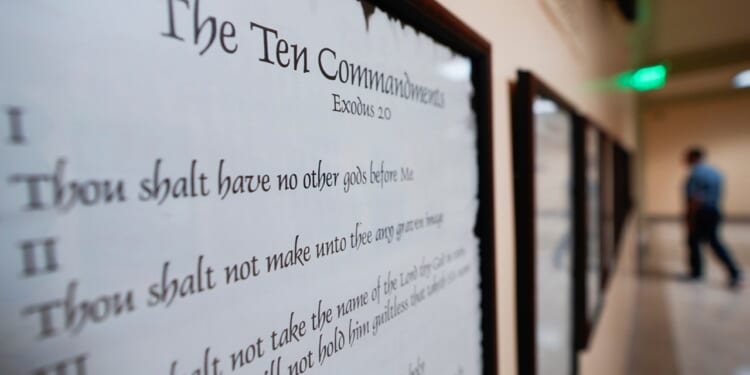 The Ten Commandments
Exodus 20
I
Thou shalt have no other gods before Me
II
Thou shalt not make unto thee any graven image
III
shalt not take the name of the Lord thy God in vain
will not hold him guiltless that taketh